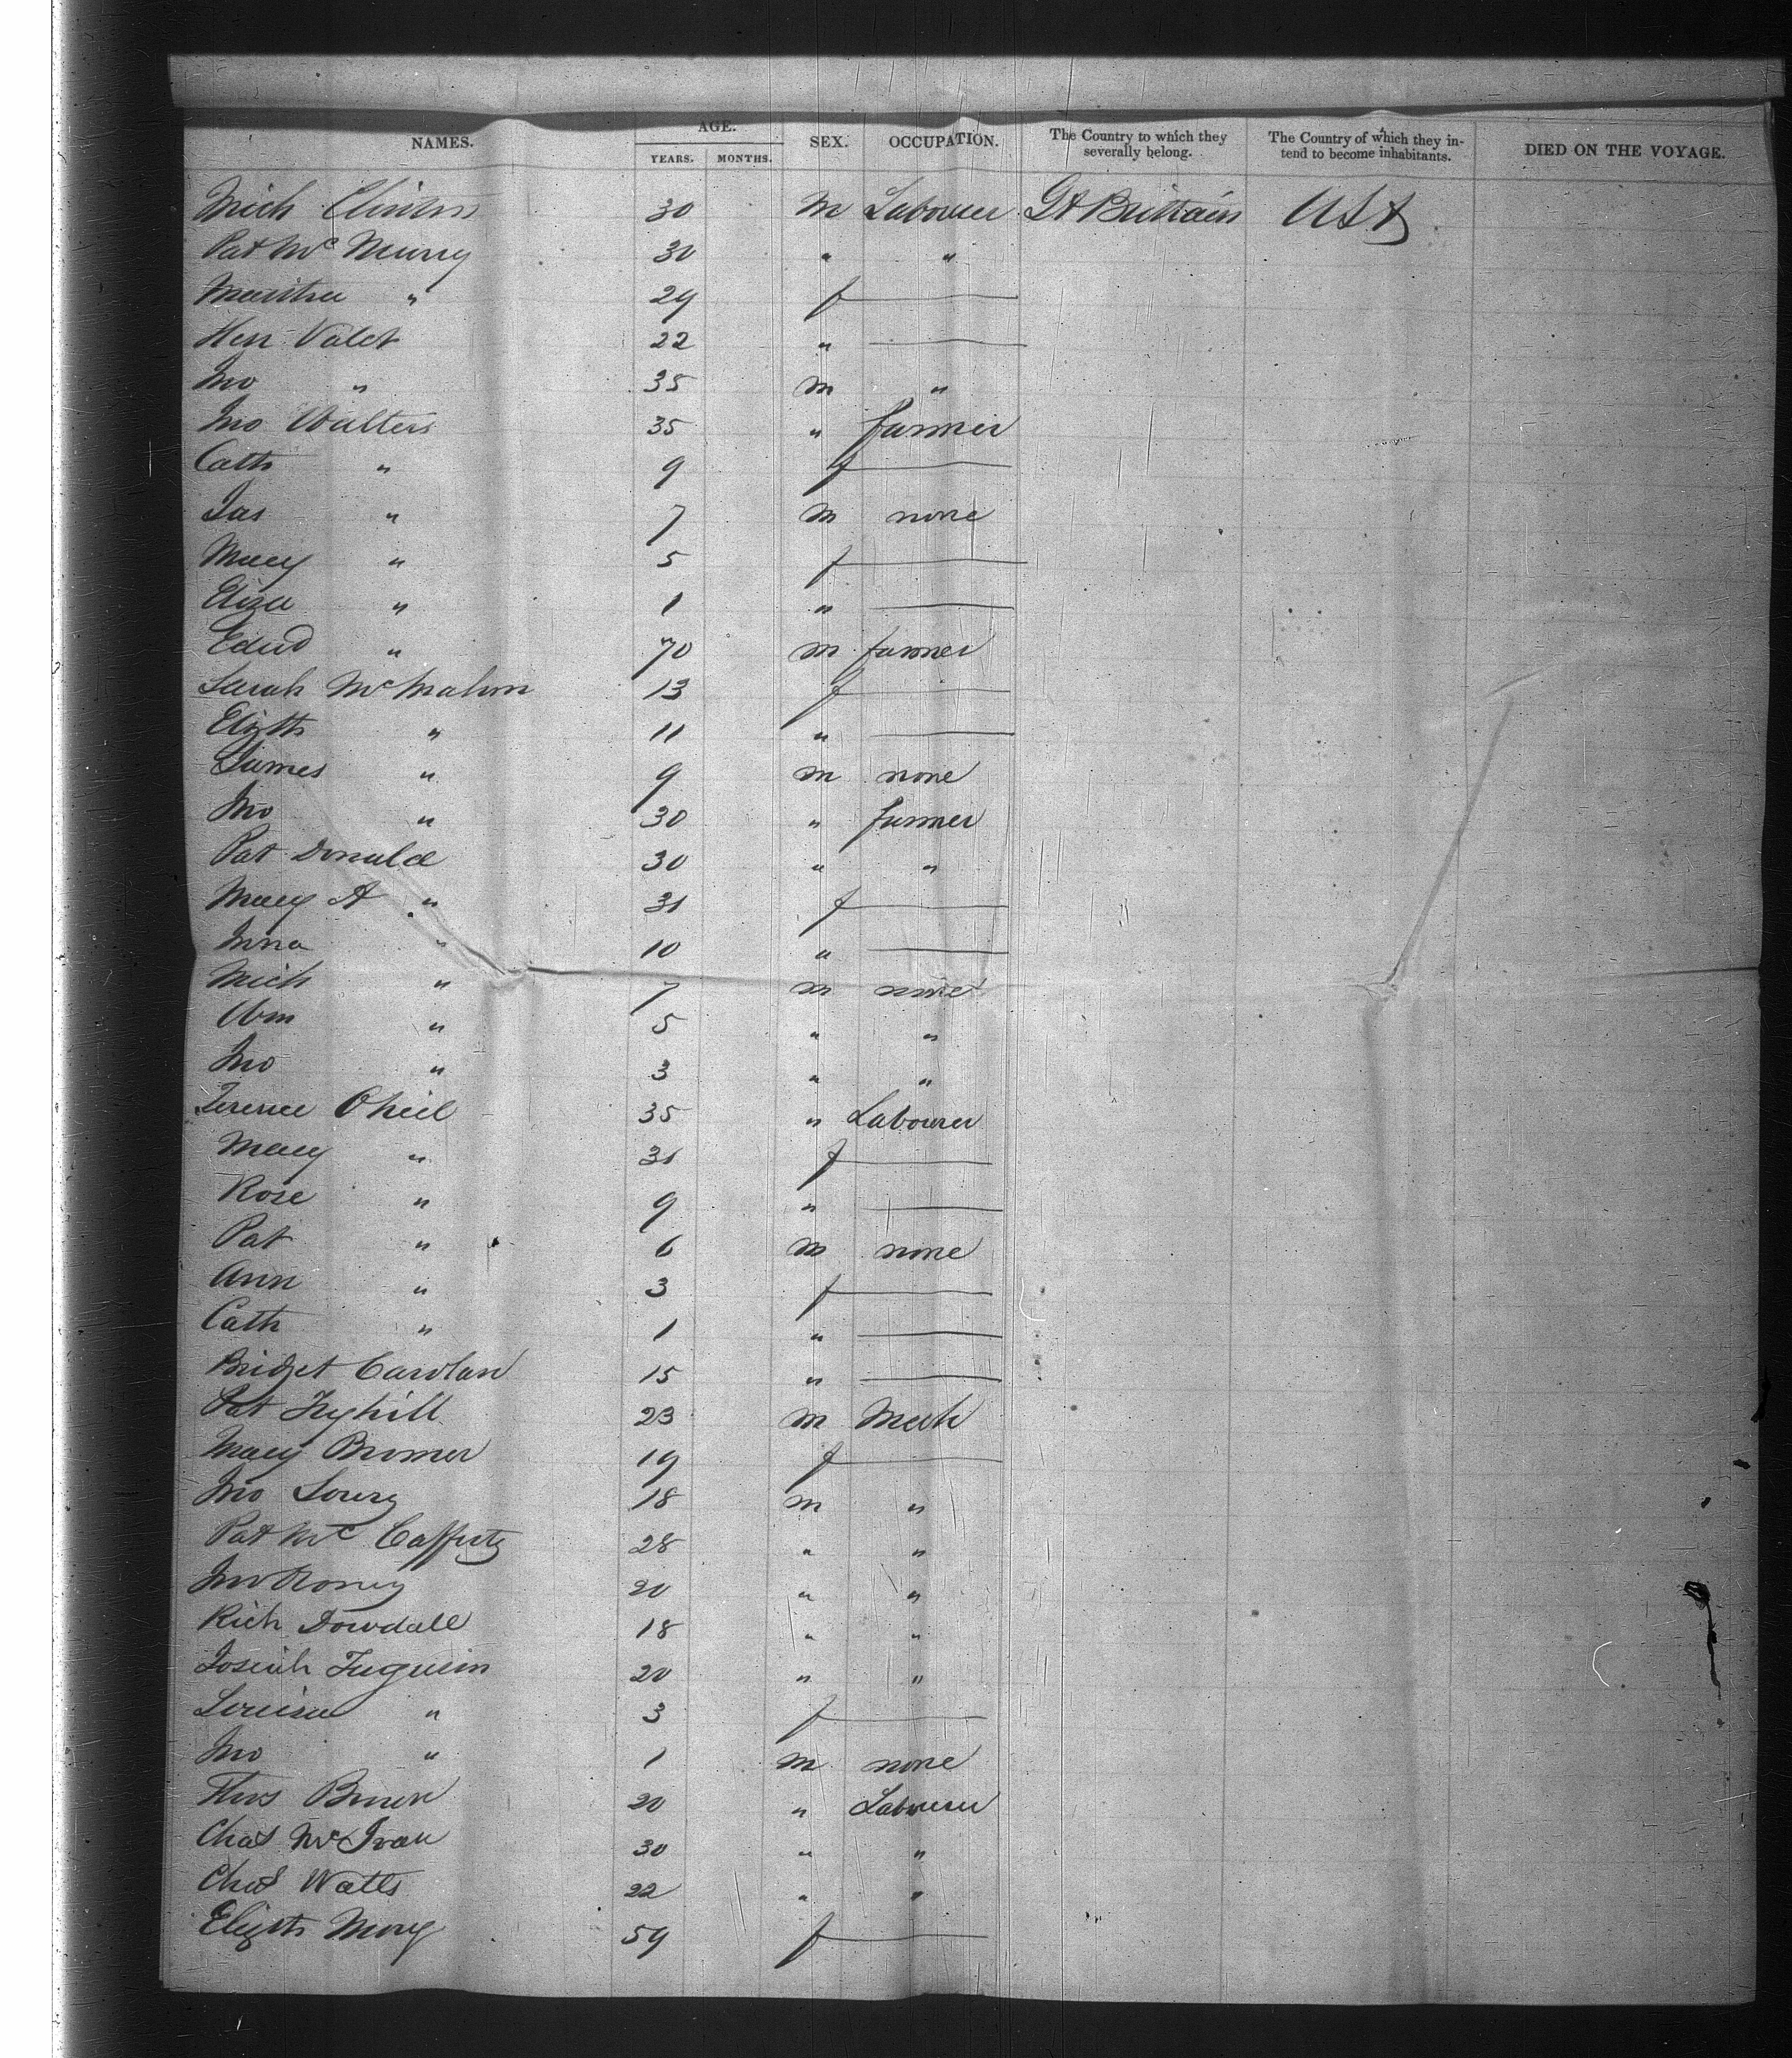 NAMES. AGE. YEARS. MONTHS. SEX. OCCUPATION. The Country to which they severally belong. The Country of which they intend to become inhabitants. DIED ON THE VOYAGE.
Mich Clinton 30 m Labourer Gt Brittain USA
Pat Mc Murry 30 " "
Martha " 29 f
Hen Valet 22 "
Jno " 35 m "
Jno Walters 35 " farmer
Cath " 9 f
Jas " 7 m none
Mary " 5 f
Eliza " 1 "
Edwd " 70 m farmer
Sarah Mc Mahon 13 f
Elizth " 11 "
James " 9 m none
Jno " 30 " farmer
Pat Donald 30 " "
Mary A " 31 f
" 10 "
Mich " 7 m none
Wm " 5 " "
Jno " 3 " "
Terence Oneil 35 " Labourer
Mary " 31 f
Rose " 9 "
Pat " 6 m none
Ann " 3 f
Cath " 1 "
Bridget Carolan 15 "
Pat 23 m Mech
Mary 19 f
Jno Lowry 18 m "
Pat Mc Cafferty 28 " "
Jno Roney 20 " "
Rich Dowdall 18 " "
Josiah 20 " "
Louisa " 3 f
Jno " 1 m none
Thos 20 " Labourer
Chas 30 " "
Chas Watts 22 " "
Elizth 59 f